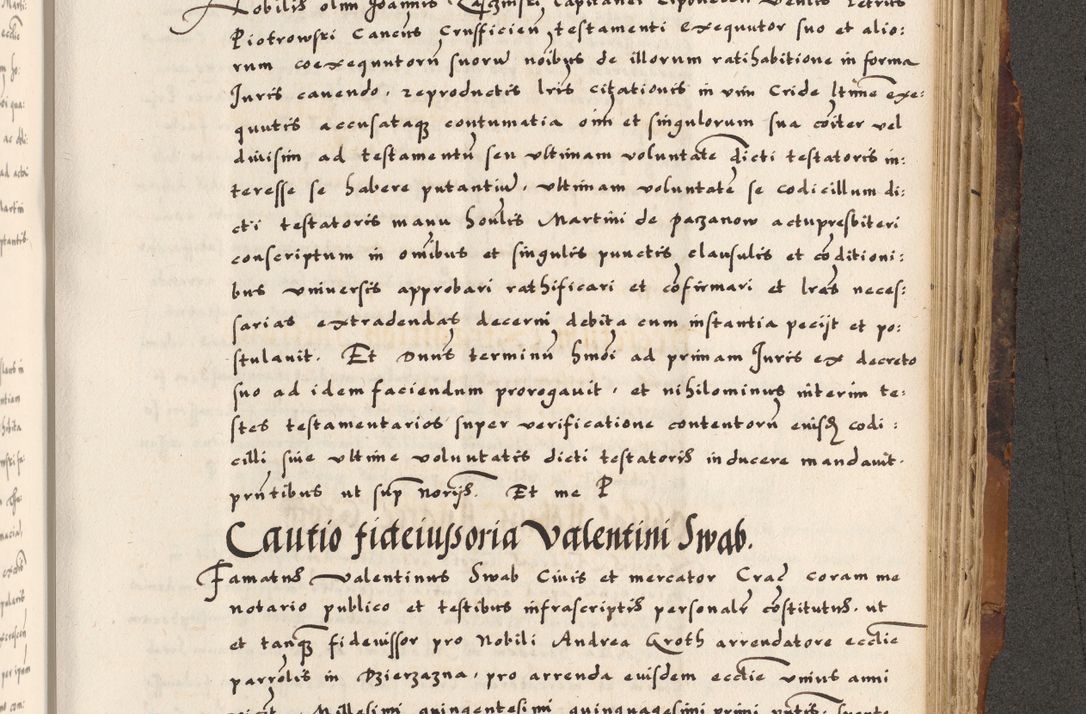 Nobilis olim Joannis Capitanei Petrus
Piotrowski Cancus Crufficien testamenti exequutor suo et alio:
rum coexequutorū suorū noibus de illorum ratihabitione in forma
Juris cavendo, reproductis lris citationis in vim Cride ltime exe:
quutis accusataq contumatia oim et singulorum sua coiter vel
divisim ad testamentū seu ultimam voluntatē dicti testatoris in:
teresse se habere putantiū, ultimam voluntatē se codicillum di:
cti testatoris manu honlis Martini de paczanow actu presbiteri
conscriptum in omibus et singulis punctis clausulis et cōditioni:
bus universis approbari rathificari et cōfirmari et lras neces:
sarias extradendas decerni debita cum instantia pecijt et po:
stulavit. Et Dnus terminū hmōi ad primam Juris ex decreto
suo ad idem faciendum prorogavit, et nihilominus interim te:
stes testamentarios super verificatione contentorū eiusdē codi:
cilli sive ultime voluntatis dicti testatoris inducere mandavit.
pntibus ut sup noriis. Et me P
Cautio fideiussoria Valentini Swab.
Famatus Valentinus Swab Civis et mercator Crac coram me
notario publico et testibus infrascriptis personalr cōstitutus, ut
et tanq̄ fideiussor pro Nobili Andrea Groth arrendatore ecclie
parrolis in Dzierzazna, pro arrenda eiusdem ecclie unius anni
Millesimi quingentesimi quinquagesimi primi pntis